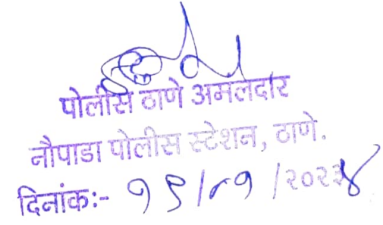 पोलीस ठाणे अमलदार
नौपाडा पोलीस स्टेशन, ठाणे.
दिनांक:- १९/०१/२०२४